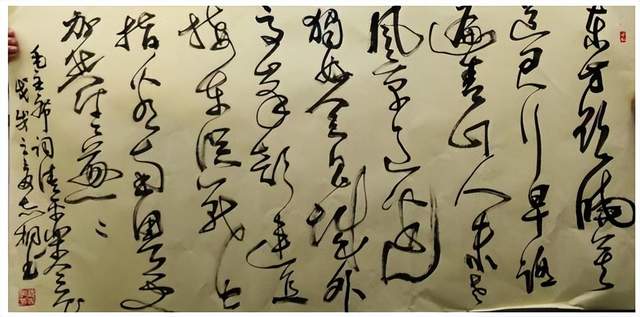 东方欲晓莫
道君行早踏
遍青山人未老
风景这边
独好会昌城外
高峰颠连直
接东溟战士
指看南粤更
加郁々葱々
毛主席词清平乐会昌
戊戌之